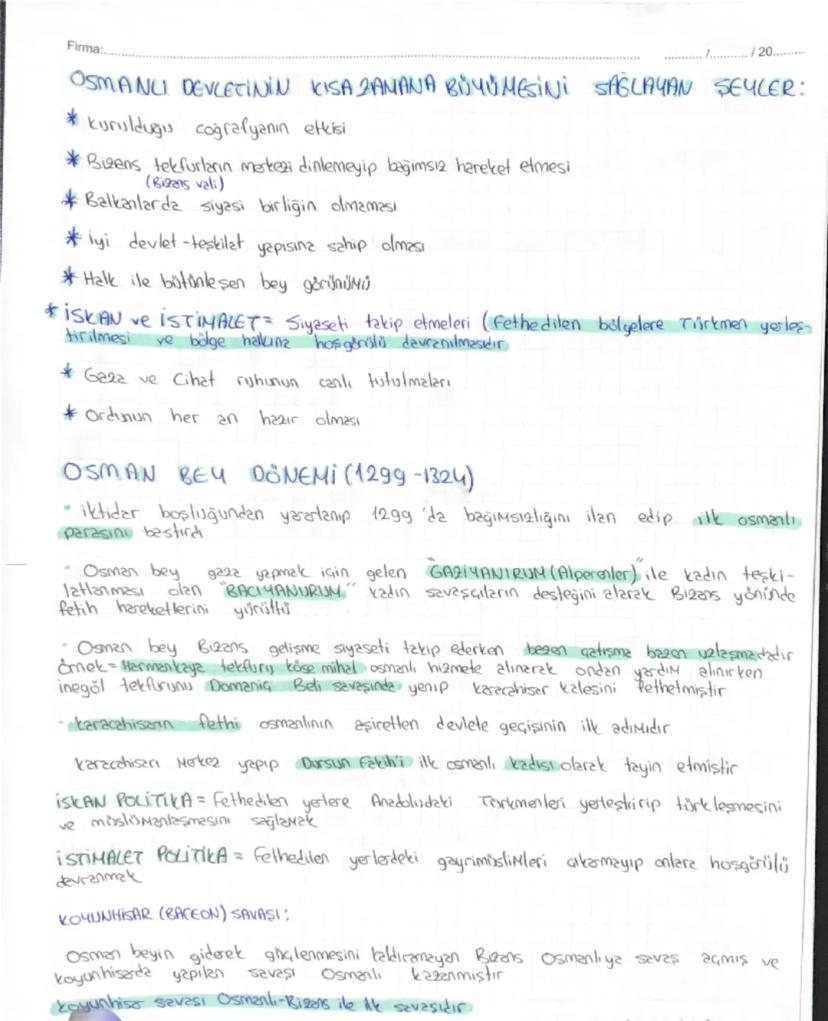 Firma:................................ ......../......../ 20........
OSMANLI DEVLETİNİN KISA ZAMANA BÜYÜMESİNİ SAĞLAYAN ŞEYLER:
* kurulduğu coğrafyanın etkisi
* Bizans tekfurların merkezi dinlemeyip bağımsız hareket etmesi
(Bizans vali)
* Balkanlarda siyasi birliğin olmaması
* iyi devlet-teşkilat yapısına sahip olması
* Halk ile bütünleşen bey görünümü
* İSKAN ve İSTİMALET= Siyaseti takip etmeleri (fethedilen bölgelere Türkmen yerleş-
tirilmesi ve bölge halkına hoşgörülü davranılmasıdır
* Gaza ve Cihat ruhunun canlı tutulmaları
* Ordunun her an hazır olması
OSMAN BEY DÖNEMİ (1299-1324)
- iktidar boşluğundan yararlanıp 1299'da bağımsızlığını ilan edip ilk osmanlı
parasını bastırdı
- Osman bey gaza yapmak için gelen "GAZİYANIRUM (Alperenler)" ile kadın teşki-
latlanması olan "BACIYANURUM" kadın savaşcıların desteğini alarak Bizans yönünde
fetih hareketlerini yürüttü
- Osman bey Bizans gelişme siyaseti takip ederken bazen çatışma bazen uzlaşmadadır
örnek= Harmankaya tekfuru köse mihal osmanlı hizmete alınarak ondan yardım alınırken
inegöl tekfurunu Domaniç Beli savaşında yenip karacahisar kalesini fethetmiştir
- karacahisarın fethi osmanlının aşiretten devlete geçişinin ilk adımıdır
karacahisarı Merkez yapıp Dursun Fakih'i ilk osmanlı kadısı olarak tayin etmiştir
İSKAN POLİTİKA = Fethedilen yerlere Anadoludaki Türkmenleri yerleştirip türkleşmesini
ve müslümanlaşmasını sağlamak
İSTİMALET POLİTİKA = Fethedilen yerlerdeki gayrimüslimleri çıkarmayıp onlara hoşgörülü
davranmak
KOYUNHİSAR (BAFEON) SAVAŞI:
Osman beyin giderek güçlenmesini kaldıramayan Bizans Osmanlıya savaş açmış ve
koyunhisarda yapılan savaşı Osmanlı kazanmıştır
koyunhisar savaşı Osmanlı-Bizans ile ilk savaşıdır